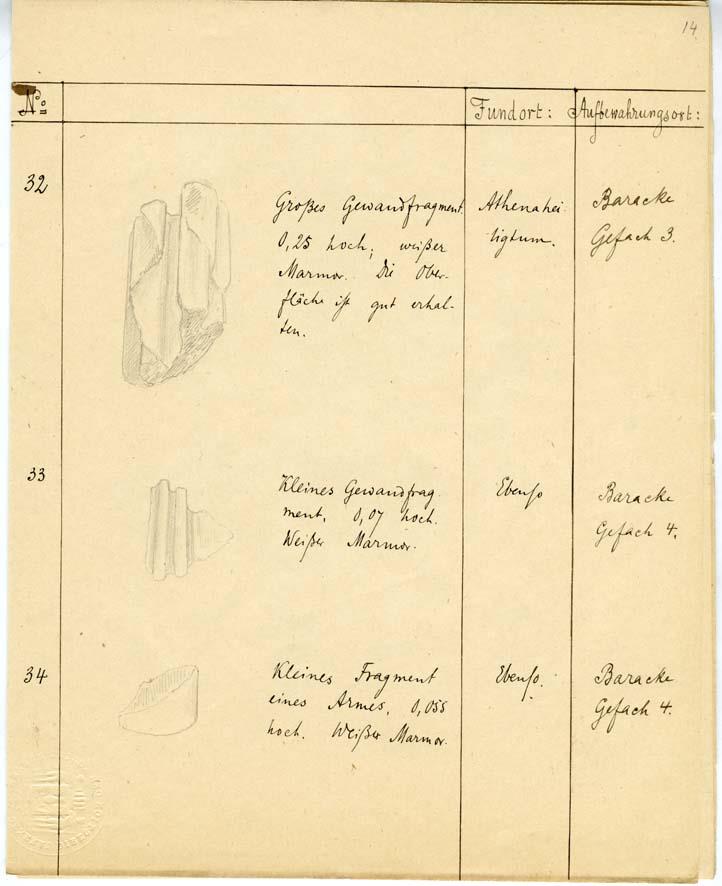 14
No:
Fundort:
Aufbewahrungsort:
32
Großes Gewandfragment.
0,25 hoch; weißer
Marmor. Die Ober-
fläche ist gut erhal-
ten.
Athenahei-
ligtum.
Baracke
Gefach 3.
33
Kleines Gewandfrag-
ment, 0,07 hoch.
Weißer Marmor.
Ebenso
Baracke
Gefach 4.
34
Kleines Fragment
eines Armes, 0,055
hoch. Weißer Marmor.
Ebenso.
Baracke
Gefach 4.